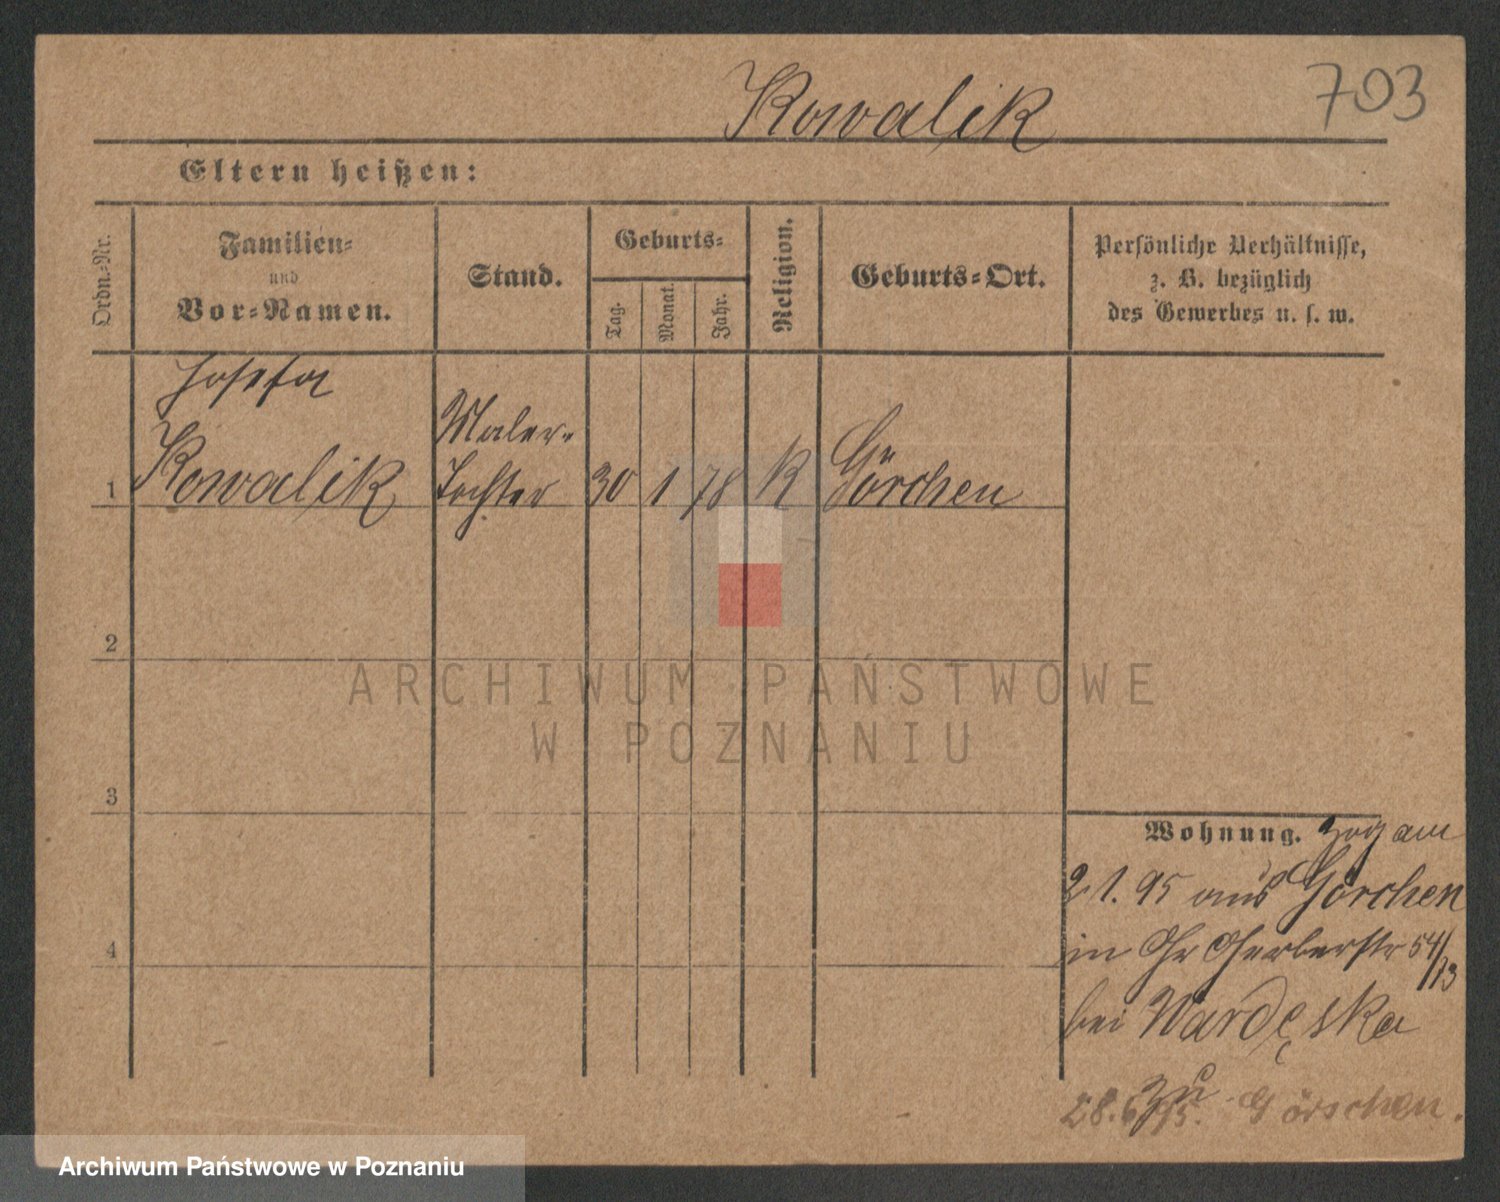 Kowalik
703
Eltern heißen:
Ordn.-Nr.
Familien-
und
Vor-Namen.
Stand.
Geburts-
Tag.
Monat.
Jahr.
Religion.
Geburts-Ort.
Persönliche Verhältnisse,
z. B. bezüglich
des Gewerbes u. s. w.
Josefa
Kowalik
Maler-
Tochter
1
30
1
78
K
Görchen
2
ARCHIWUM PAŃSTWOWE
W POZNANIU
3
Wohnung. zog am
21.95 aus Görchen
in Gr Gerberstr 54/13
bei
4
zu
28.6.95. Görschen.
Archiwum Państwowe w Poznaniu